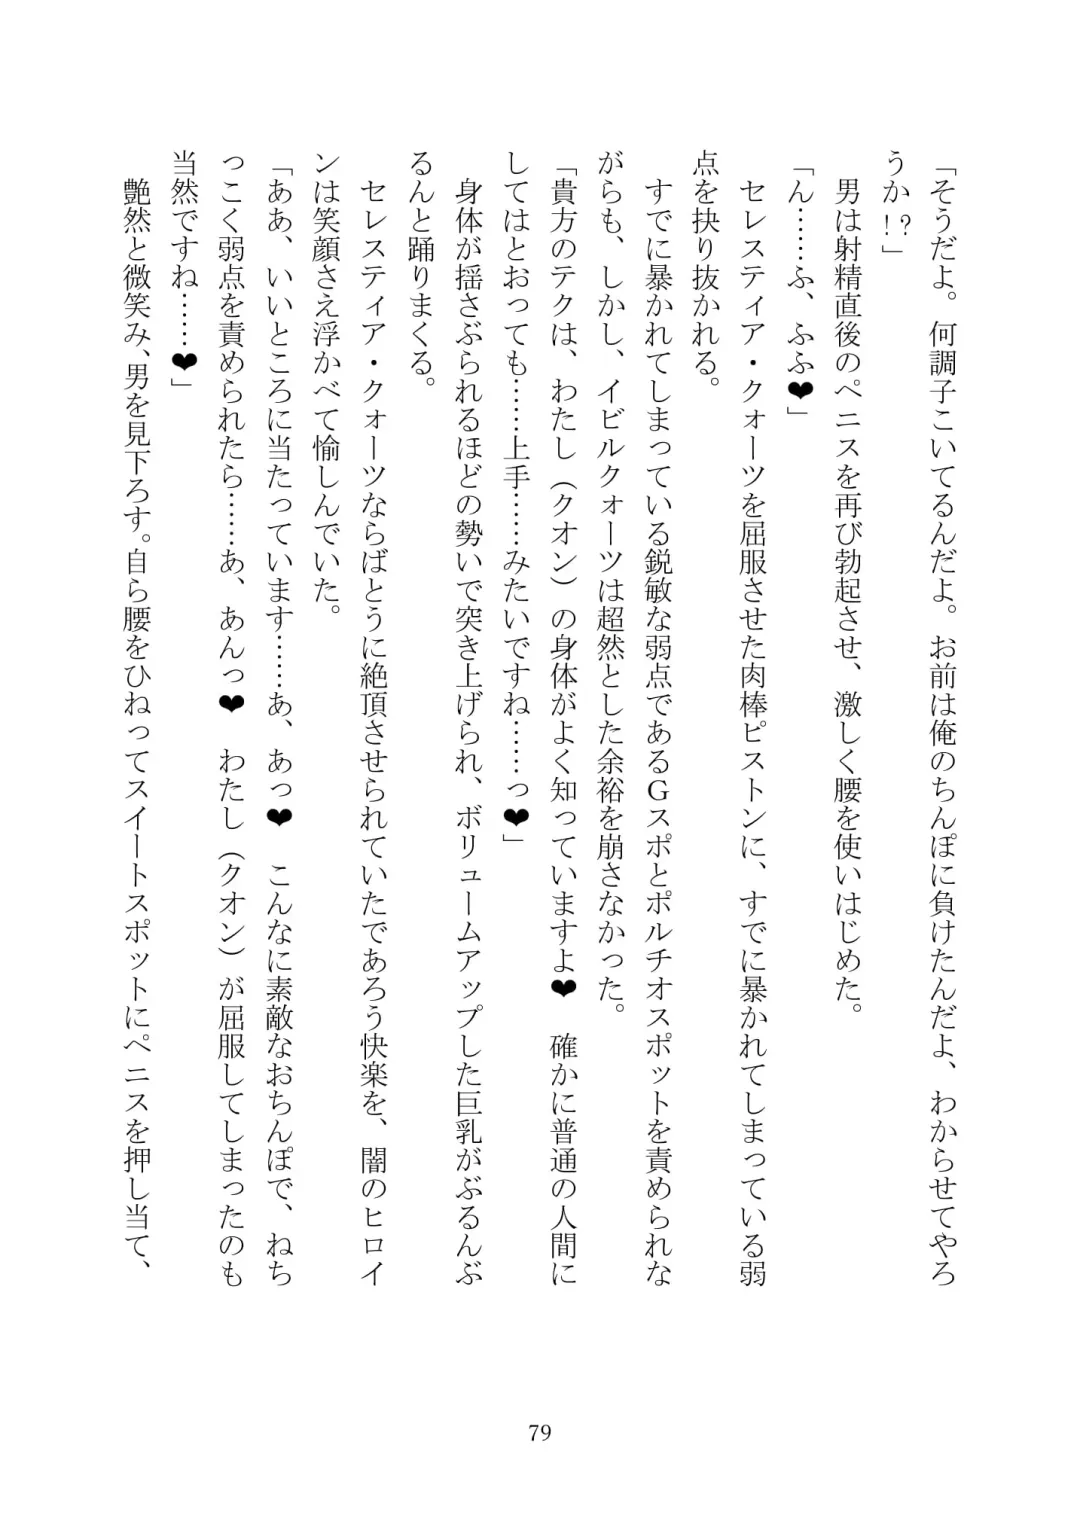 「そうだよ。何調子こいてるんだよ。お前は俺のちんぽに負けたんだよ、わからせてやろ
うか!?」
男は射精直後のペニスを再び勃起させ、激しく腰を使いはじめた。
「ん……ふ、ふふ❤」
セレスティア・クォーツを屈服させた肉棒ピストンに、すでに暴かれてしまっている弱
点を抉り抜かれる。
すでに暴かれてしまっている鋭敏な弱点であるGスポとポルチオスポットを責められな
がらも、しかし、イビルクォーツは超然とした余裕を崩さなかった。
「貴方のテクは、わたし（クオン）の身体がよく知っていますよ❤　確かに普通の人間に
してはとおっても……上手……みたいですね……っ❤」
身体が揺さぶられるほどの勢いで突き上げられ、ボリュームアップした巨乳がぶるんぶ
るんと踊りまくる。
セレスティア・クォーツならばとうに絶頂させられていたであろう快楽を、闇のヒロイ
ンは笑顔さえ浮かべて愉しんでいた。
「ああ、いいところに当たっています……あ、あっ❤　こんなに素敵なおちんぽで、ねち
っこく弱点を責められたら……あ、あんっ❤　わたし（クオン）が屈服してしまったのも
当然ですね……❤」
艶然と微笑み、男を見下ろす。自ら腰をひねってスイートスポットにペニスを押し当て、
79